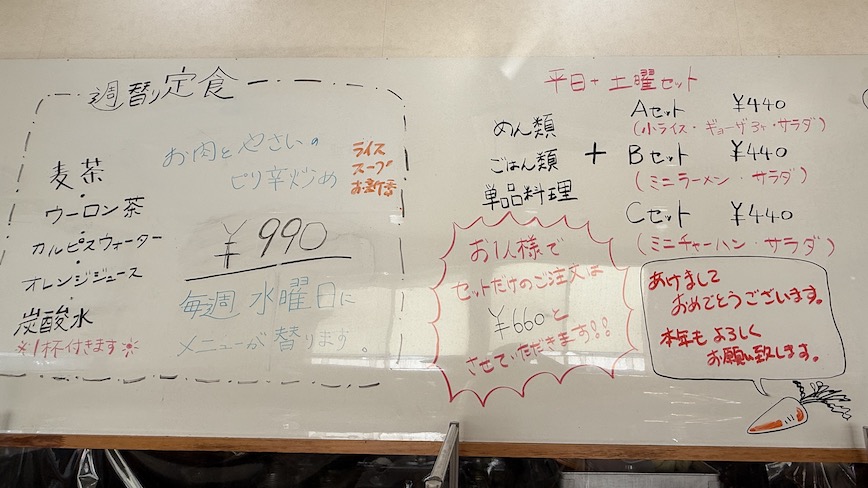 週替り定食
お肉とやさいの
ピリ辛炒め
ライス
スープ
お新香
麦茶
・
ウーロン茶
・
カルピスウォーター
・
オレンジジュース
・
炭酸水
※1杯付きます※
¥990
毎週 水曜日に
メニューが替ります。
平日+土曜セット
めん類
ごはん類
単品料理
+
Aセット ¥440
(小ライス・ギョーザ3ヶ・サラダ)
Bセット ¥440
(ミニラーメン・サラダ)
Cセット ¥440
(ミニチャーハン・サラダ)
お1人様で
セットだけのご注文は
¥660と
させていただきます!!
あけまして
おめでとうございます。
本年もよろしく
お願い致します。